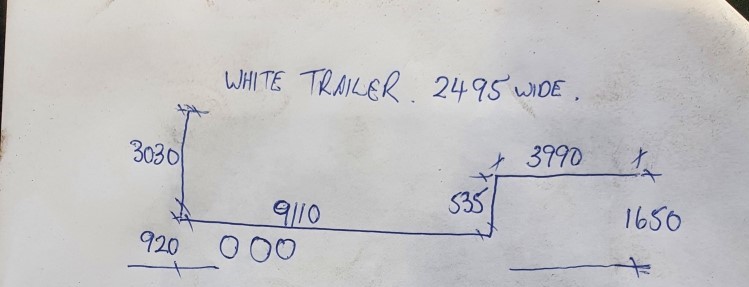 WHITE TRAILER. 2495 WIDE.
3030
3990
535
9110
1650
920